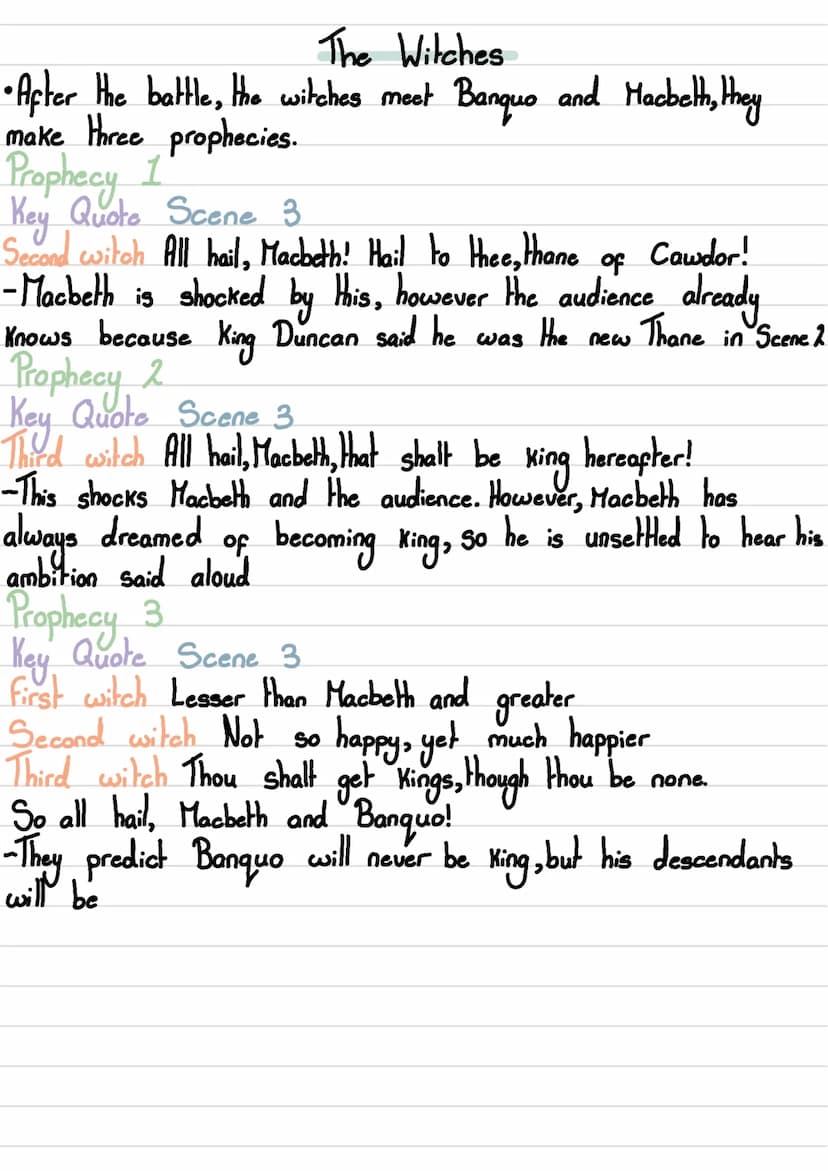 The Witches
•After the battle, the witches meet Banquo and Macbeth, they
make three prophecies.
Prophecy 1
Key Quote Scene 3
Second witch All hail, Macbeth! Hail to thee, thane of Cawdor!
-Macbeth is shocked by this, however the audience already
Knows because King Duncan said he was the new Thane in Scene 2
Prophecy 2
Key Quote Scene 3
Third witch All hail, Macbeth, that shalt be King hereafter!
-This shocks Macbeth and the audience. However, Macbeth has
always dreamed of becoming King, so he is unsettled to hear his
ambition said aloud
Prophecy 3
Key Quote Scene 3
First witch Lesser than Macbeth and greater
Second witch Not so happy, yet much happier
Third witch Thou shalt get Kings, though thou be none.
So all hail, Macbeth and Banquo!
-They predict Banquo will never be King, but his descendants
will be